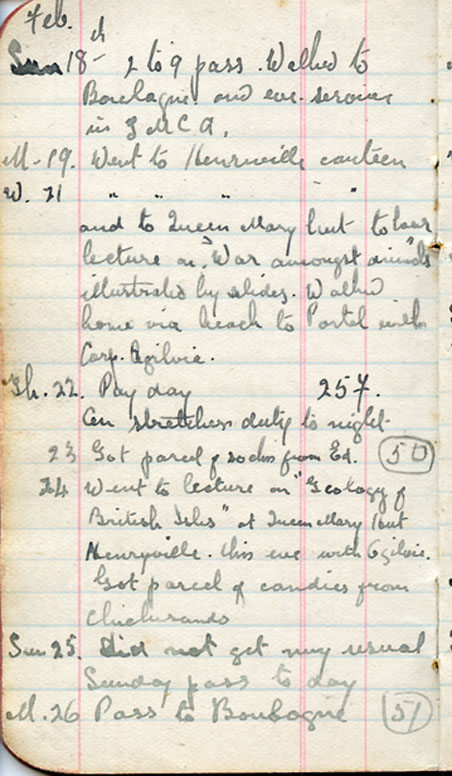 Feb.
Sun 18th 2 to 9 pass. Walked to
Boulagne and eve. service
in Y M C A.
M - 19. Went to Henriville canteen
W. 21 " " " " "
and to Queen Mary hut to hear
lecture on "War amongst animals"
illustrated by slides. Walked
home via beach to Portal with
Corp. Ogilvie.
Th. 22. Pay day 257.
On stretcher duty to night
23 Got parcel of socks from Ed. 50
24 Went to lecture on "Geology of
British Isles" at Queen Mary Hut
Henryville. this eve with Ogilvie.
Got parcel of candies from
Sun 25. Did not get my usual
Sunday pass to day
M. 26 Pass to Boulogne 51